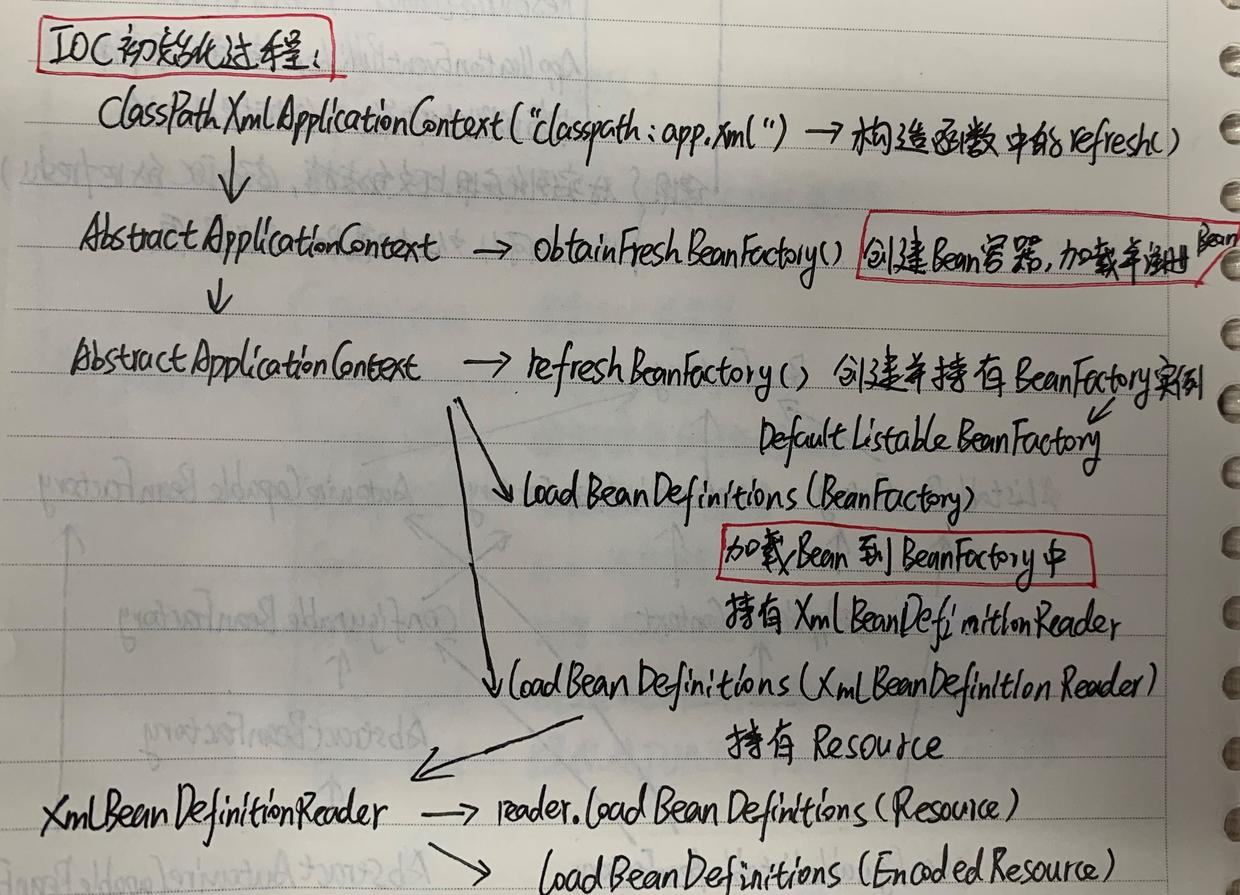 IOC初始化过程:
ClassPathXmlApplicationContext("classpath:app.xml") → 构造函数中的refresh()
AbstractApplicationContext → obtainFreshBeanFactory() 创建Bean容器,加载并注册Bean
AbstractApplicationContext → refreshBeanFactory() 创建并持有BeanFactory实例
DefaultListableBeanFactory
loadBeanDefinitions(BeanFactory)
加载Bean到BeanFactory中
持有XmlBeanDefinitionReader
loadBeanDefinitions(XmlBeanDefinitionReader)
持有Resource
XmlBeanDefinitionReader → reader.loadBeanDefinitions(Resource)
loadBeanDefinitions(EncodedResource)